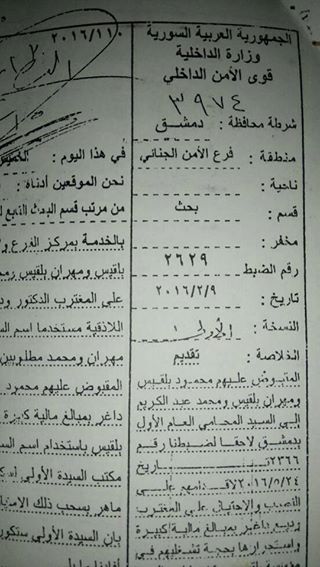 الجمهورية العربية السورية
وزارة الداخلية
قوى الأمن الداخلي
٣٩٧٤
شرطة محافظة : دمشق
منطقة : فرع الأمن الجنائي
ناحية :
قسم : بحث
مخفر :
رقم الضبط ٢٦٢٩
تاريخ : ٢٠١٦/٢/٩
النسخة : الأولى
الخلاصة : تقديم
المقبوض عليهم محمود بلقيس
ومهران بلقيس ومحمد عبد الكريم
الى السيد المحامي العام الأول
بدمشق لاحقا لضبطنا رقم
٢٣٦٦ تاريخ
٢٠١٦/٥/٢٤ لاقدامهم على
النصب والاحتيال على المغترب
ربيع داغر بمبالغ مالية كبيرة
بحجة
٢٠١٦/١١٠
في هذا اليوم : الخميس
نحن الموقعين أدناه :
من مرتب قسم البحث التابع
بالخدمة بمركز الفرع
بلقيس ومهران بلقيس
على المغترب الدكتور
اللاذقية مستخدما اسم
مهران ومحمد مطلوبين
المقبوض عليهم محمود
داغر بمبالغ مالية كبيرة
بلقيس باستخدام اسم
مكتب السيدة الأولى
ماهر بسحب ذلك
بأن السيدة الأولى ستكون